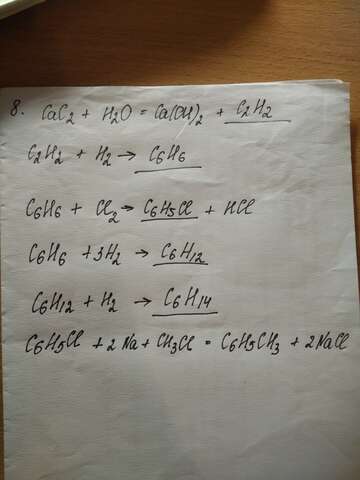 8. CaC2 + H2O = Ca(OH)2 + C2H2
C2H2 + H2 → C6H6
C6H6 + Cl2 → C6H5Cl + HCl
C6H6 + 3H2 → C6H12
C6H12 + H2 → C6H14
C6H5Cl + 2Na + CH3Cl = C6H5CH3 + 2NaCl